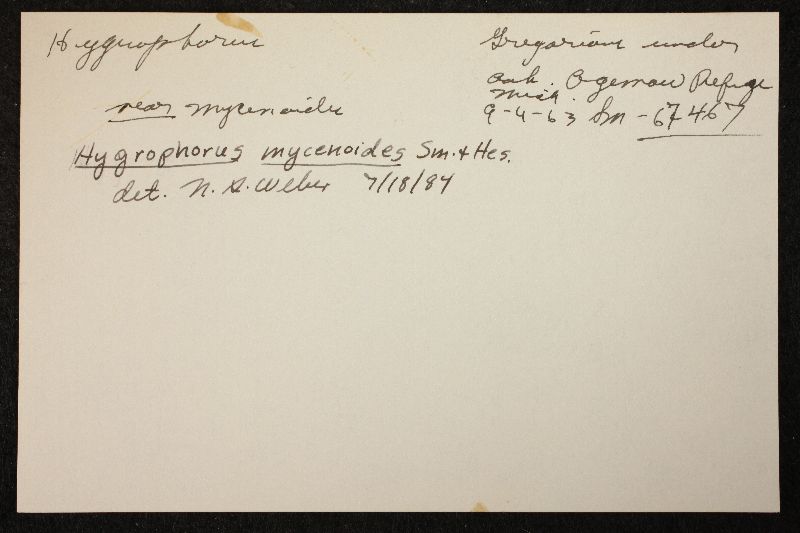 Hygrophorus
Gregarious under
oak. Ogemaw Refuge
Mich.
9-4-63 Sm-67467
near mycenoides
Hygrophorus mycenoides Sm. & Hes.
det. N. S. Weber 7/18/84